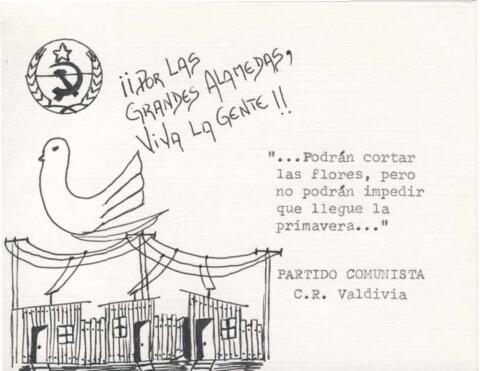 ¡¡POR LAS
GRANDES ALAMEDAS,
VIVA LA GENTE!!
"...Podrán cortar
las flores, pero
no podrán impedir
que llegue la
primavera..."
PARTIDO COMUNISTA
C.R. Valdivia